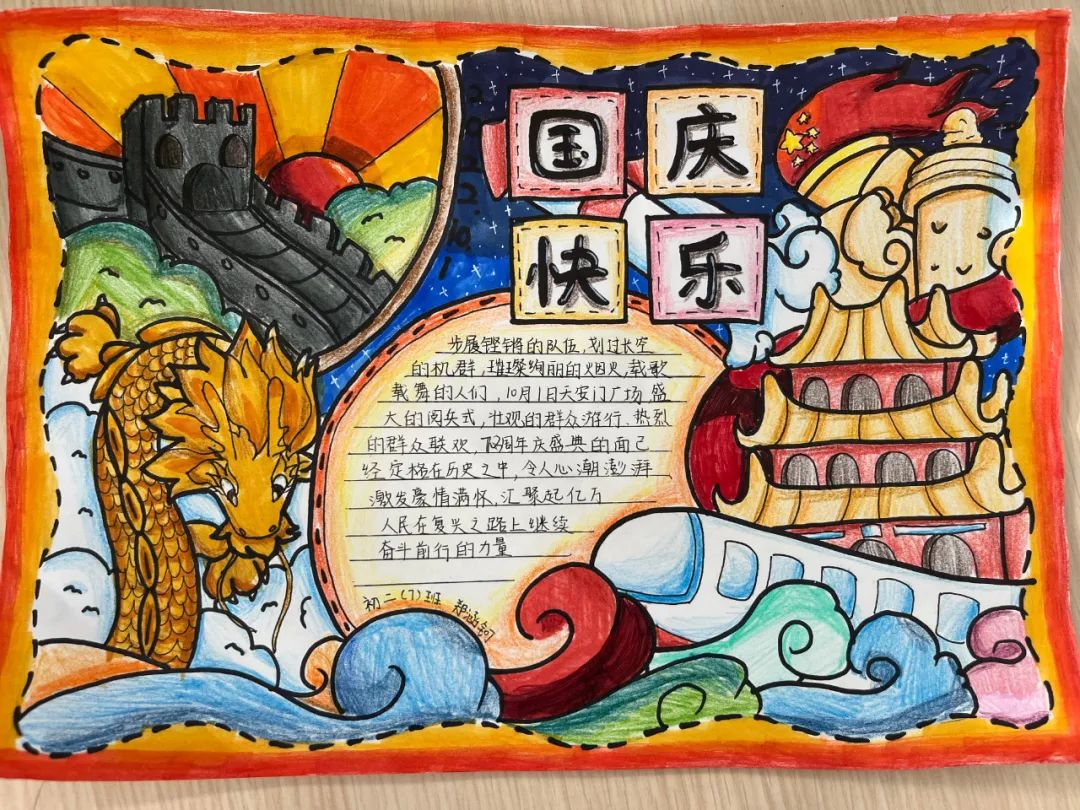 国庆
快乐
2022.10.1
步履铿锵的队伍,划过长空
的机群,璀璨绚丽的烟火,载歌
载舞的人们,10月1日天安门广场盛
大的阅兵式,壮观的群众游行、热烈
的群众联欢,72周年庆盛典的面已
经定格在历史之中,令人心潮澎湃、
激发豪情满怀,汇聚起亿万
人民在复兴之路上继续
奋斗前行的力量
初二(7)班